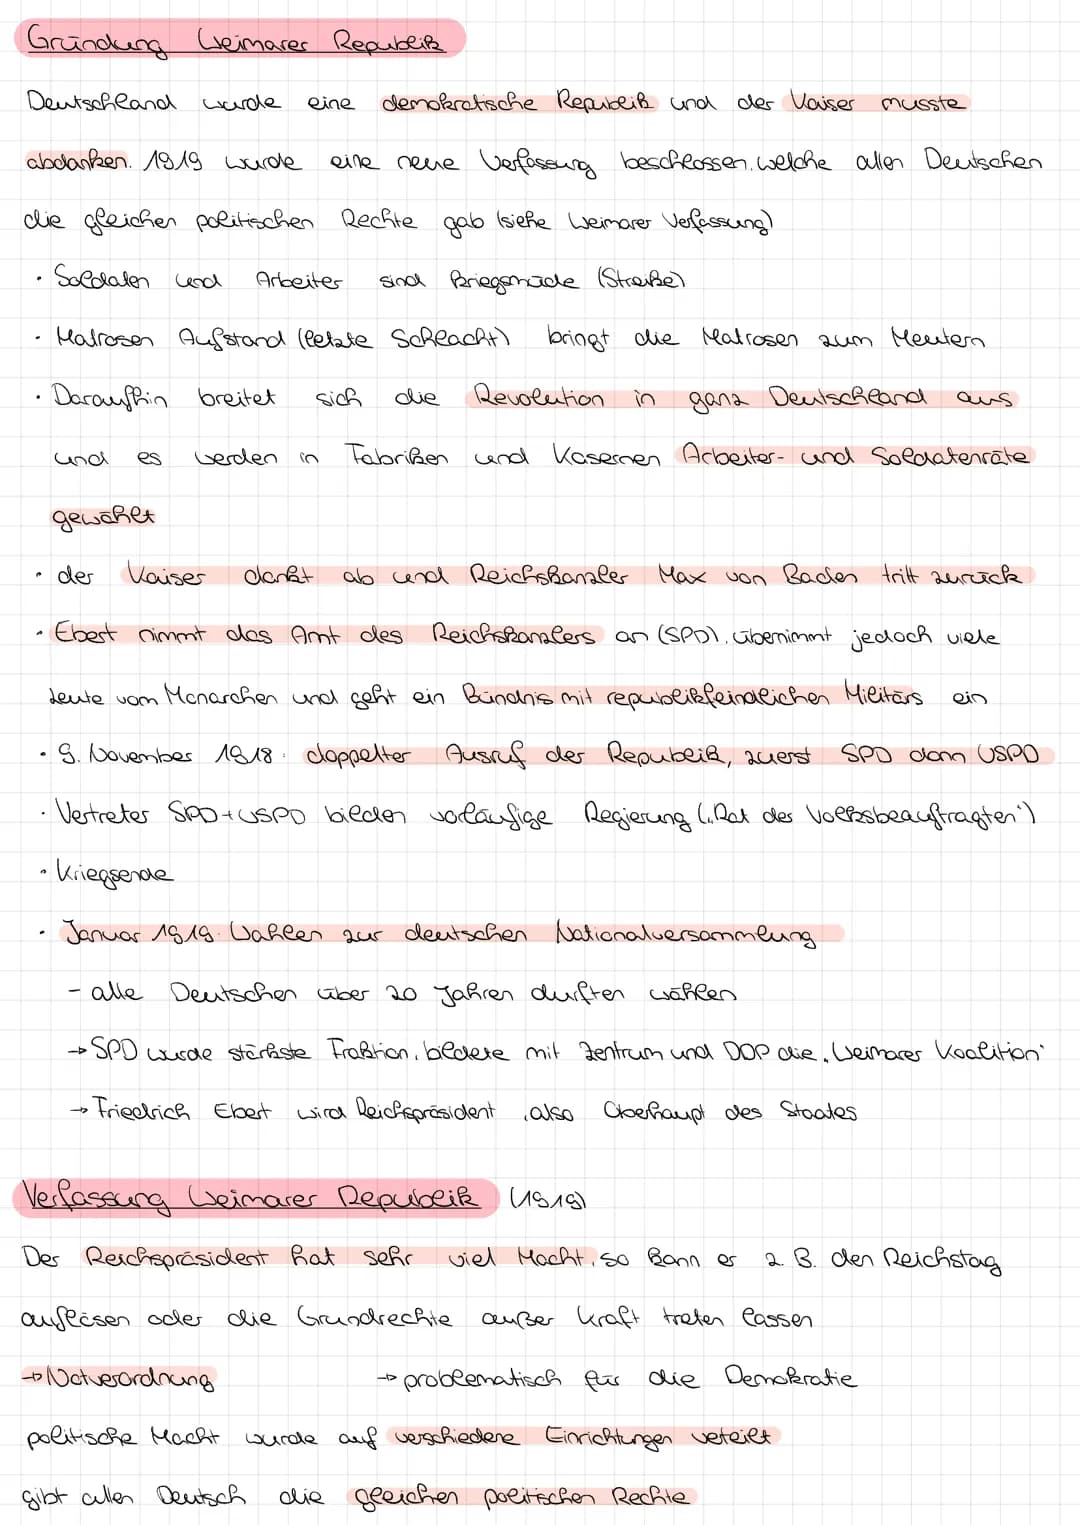 Gründung Weimarer Republik
Deutschland wurde eine demokratische Republik und der Kaiser musste
abdanken. 1919 wurde eine neue Verfassung beschlossen, welche allen Deutschen
die gleichen politischen Rechte gab (siehe Weimarer Verfassung)
· Soldaten und Arbeiter sind kriegsmüde (Streike)
· Matrosen Aufstand (letzte Schlacht) bringt die Matrosen zum Meutern
· Daraufhin breitet sich die Revolution in ganz Deutschland aus
und es werden in Fabriken und Kasernen Arbeiter- und Soldatenräte
gewählt
· der Kaiser dankt ab und Reichskanzler Max von Baden tritt zurück
· Ebert nimmt das Amt des Reichskanzlers an (SPD), übernimmt jedoch viele
Leute vom Monarchen und geht ein Bündnis mit republikfeindlichen Militärs ein
· 9. November 1918: doppelter Ausruf der Republik, zuerst SPD dann USPD
· Vertreter SPD+USPD bilden vorläufige Regierung („Rat der Volksbeauftragten")
· Kriegsende
· Januar 1919: Wahlen zur deutschen Nationalversammlung
- alle Deutschen über 20 Jahren durften wählen
→ SPD wurde stärkste Fraktion, bildete mit Zentrum und DDP die „Weimarer Koalition"
→ Friedrich Ebert wird Reichspräsident, also Oberhaupt des Staates
Verfassung Weimarer Republik (1919)
Der Reichspräsident hat sehr viel Macht, so kann er z. B. den Reichstag
auflösen oder die Grundrechte außer Kraft treten lassen
→ Notverordnung → problematisch für die Demokratie
politische Macht wurde auf verschiedene Einrichtungen veteilt
gibt allen Deutsch die gleichen politischen Rechte